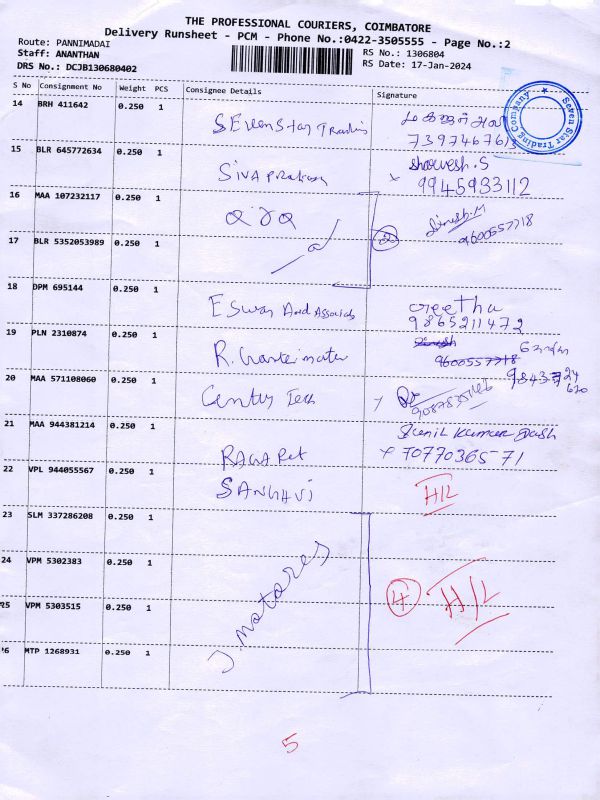 THE PROFESSIONAL COURIERS, COIMBATORE
Delivery Runsheet - PCM - Phone No.:0422-3505555 - Page No.:2
Route: PANNIMADAI
Staff: ANANTHAN
DRS No.: DCJB130680402
RS No.: 1306804
RS Date: 17-Jan-2024
S No Consignment No Weight PCS Consignee Details Signature
14 BRH 411642 0.250 1 SEvenStar Trading
Seven Star Trading Company
15 BLR 645772634 0.250 1 SIVA Prakash Sharvesh.S
x 9945933112
16 MAA 107232117 0.250 1 Dinesh.M
9600557718
17 BLR 5352053989 0.250 1 2
18 DPM 695144 0.250 1 Eswar And Associates Geetha
9865211472
19 PLN 2310874 0.250 1 R.
9600557718
20 MAA 571108060 0.250 1 Century Tech
21 MAA 944381214 0.250 1 Sunil Kumar Dash
x 7077036571
22 VPL 944055567 0.250 1 SANGHVI H/L
23 SLM 337286208 0.250 1
24 VPM 5302383 0.250 1 J. motores 4 H/L
25 VPM 5303515 0.250 1
26 MTP 1268931 0.250 1
5